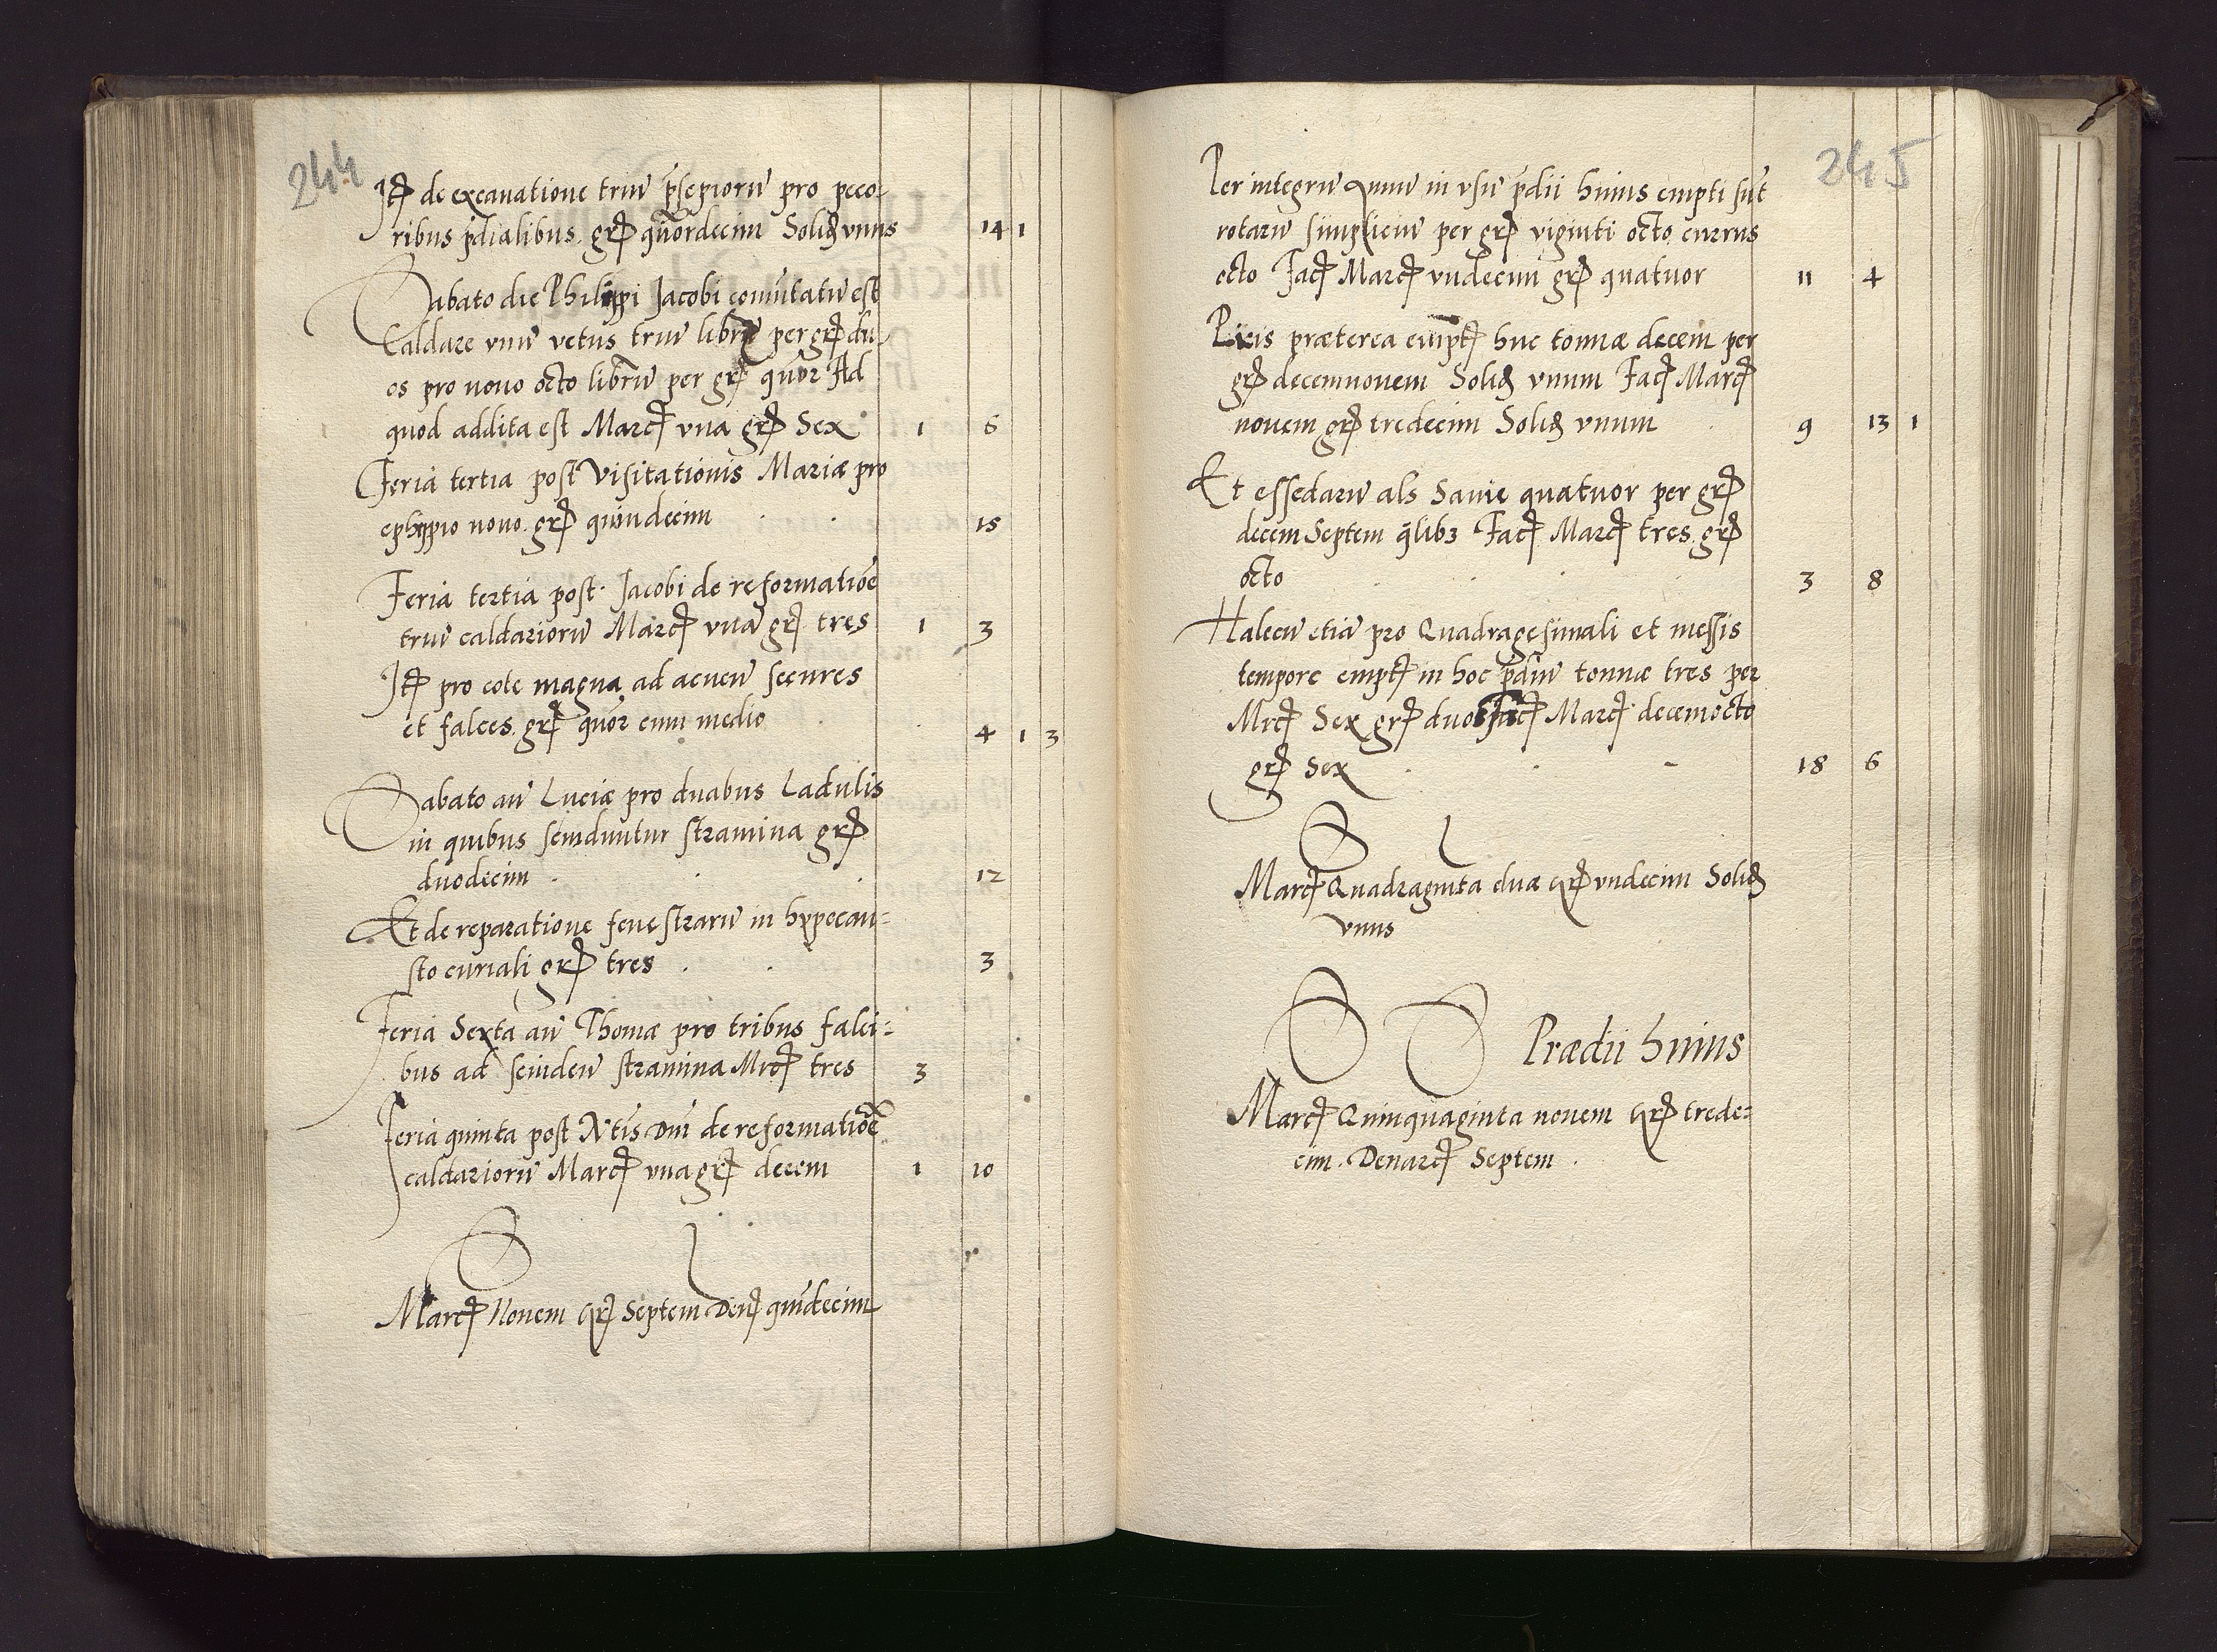 244
Itē de excavatione triū p̄sepiorū pro peco-
ribus p̄dialibus. grꝭ quōrdecim Solidꝭ vnus 14 1
Sabato die Philippi Jacobi comūtatū est
Caldare vnū vetus triū librarū per grꝭ du-
os pro novo octo librarū per grꝭ quōr Ad
quod addita est Marcꝭ vna grꝭ Sex 1 6
Feria tertia post Visitationis Mariæ pro
ephippio novo. grꝭ quindecim 15
Feria tertia post Jacobi de reformatiōe
triū caldariorū Marcꝭ vna grꝭ tres 1 3
Itē pro cote magna ad acuen̄ secures
et falces. grꝭ quōr cum medio 4 1 3
Sabato an̄ Luciæ pro duabus Ladulis
in quibus scinduntur stramina grꝭ
duodecim 12
Et de reparatione fenestrarū in hypocau-
sto curiali grꝭ tres 3
Feria Sexta an̄ Thomæ pro tribus falci-
bus ad scinden̄ stramina Mrcꝭ tres 3
Feria quinta post Ntīs Dnī de reformatiōe
caldariorū Marcꝭ vna grꝭ decem 1 10
S l
Marcꝭ Nonem Grꝭ Septem Denꝭ quindecim
245
Per integrū annū in vsū p̄dii huius empti sūt
rotarū simpliciū per grꝭ viginti octo currus
octo Facꝭ Marcꝭ vndecim grꝭ quatuor 11 4
Picis præterea emptꝭ huc tonnæ decem per
grꝭ decemnouem Solidꝭ vnum Facꝭ Marcꝭ
nouem grꝭ tredecim Solidꝭ vnum 9 13 1
Et essedarū als Sanie quatuor per grꝭ
decem Septem q̄libꝫ Facꝭ Marcꝭ tres grꝭ
octo 3 8
Halecū etiā pro Quadragesimali et messis
tempore emptꝭ in hoc p̄diū tonnæ tres per
Mrcꝭ Sex grꝭ duos Facꝭ Marcꝭ decemocto
grꝭ Sex 18 6
S l
Marcꝭ Quadraginta duæ Grꝭ vndecim Solidꝭ
vnus
S S Prædii huius
Marcꝭ Quinquaginta nonem Grꝭ trede-
cim. Denarꝭ Septem